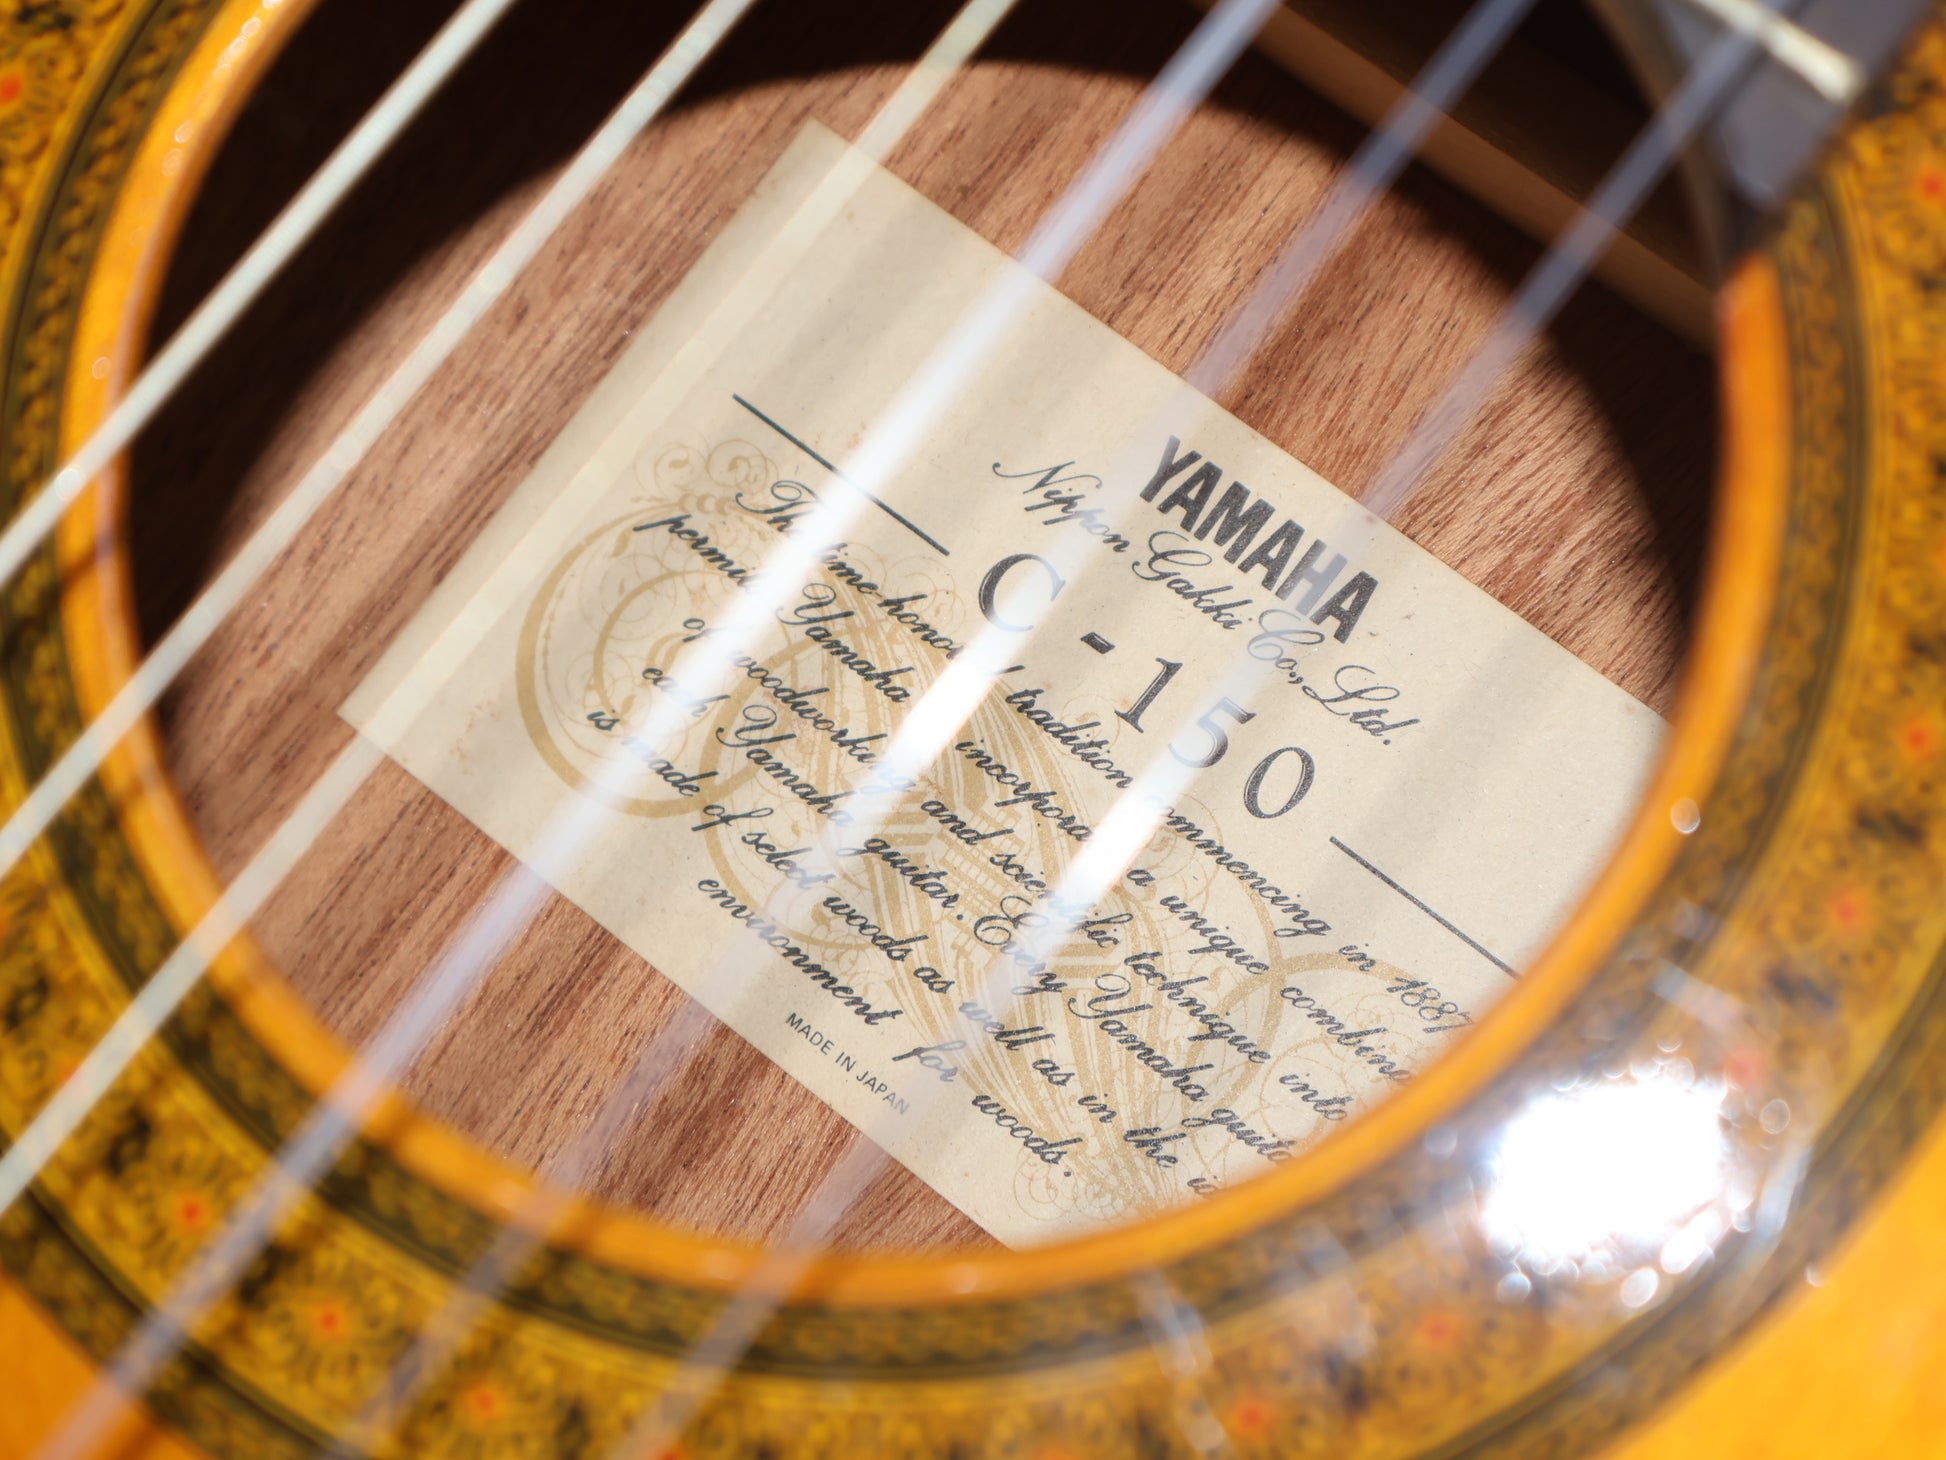 YAMAHA
Nippon Gakki Co., Ltd.
C-150
The time-honored tradition commencing in 1887
permits Yamaha incorporate a unique
of woodworking and scientific technique into
each Yamaha guitar. Every Yamaha
is made of select woods as well as in the
environment for woods.
MADE IN JAPAN